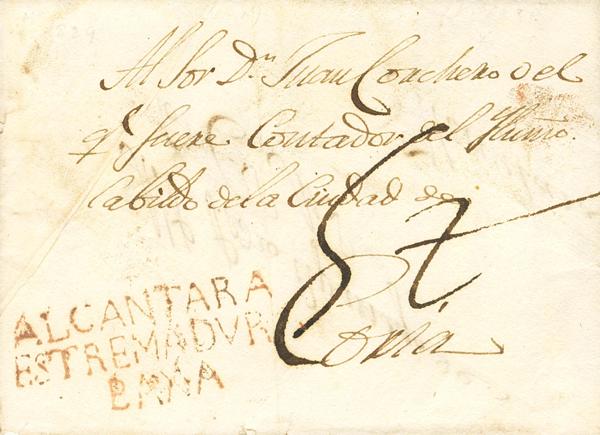 Al Sor Dn Juan Conchero o el
qe fuere Contador del Illmo.
Cabildo de la Ciudad de
Coria
ALCANTARA
ESTREMADVRA
BAXA